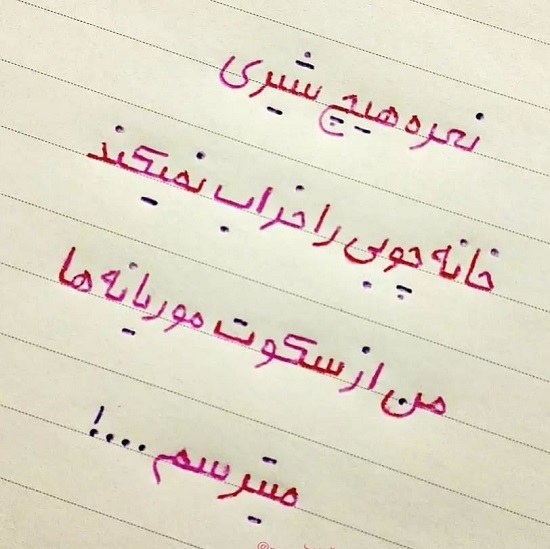 نعره هیچ شیری
خانه چوبی را خراب نمیکند
من از سکوت موریانه ها
میترسم ....!